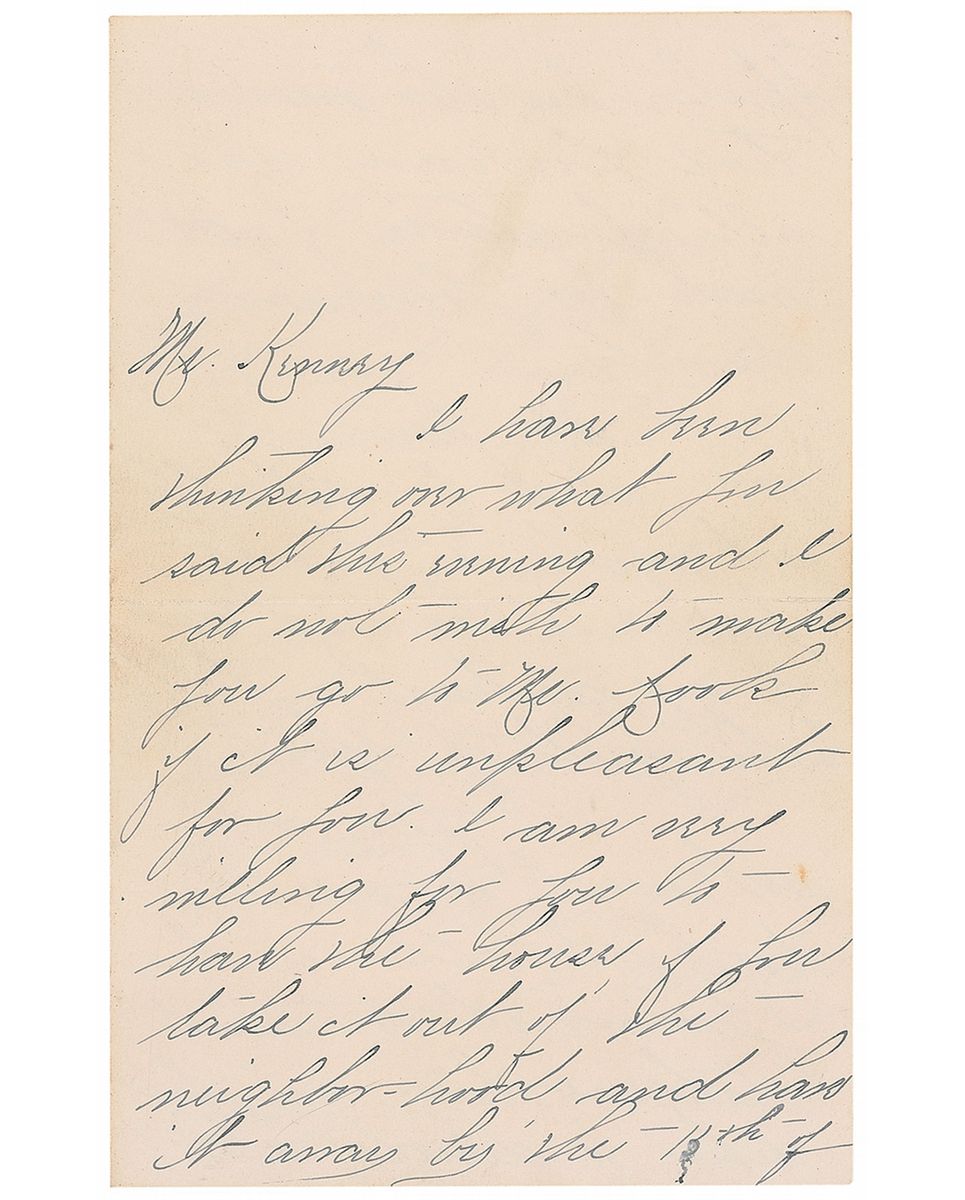 Mr. Kenney
I have been
thinking over what you
said this evening and I
do not wish to make
you go to Mr. Cook
if it is unpleasant
for you. I am very
willing for you to
have the house if you
take it out of the
neighbor-hood and have
it away by the th of